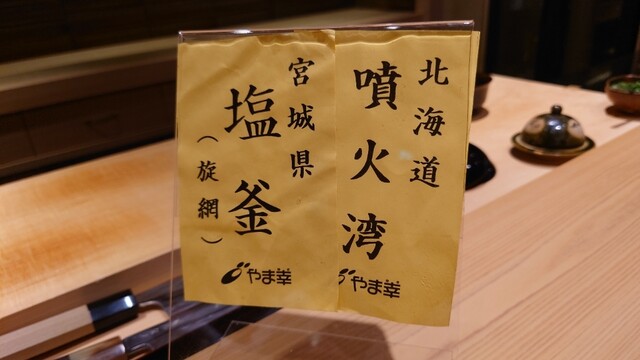 北海道
噴火湾
やま幸
宮城県
塩釜
（旋網）
やま幸